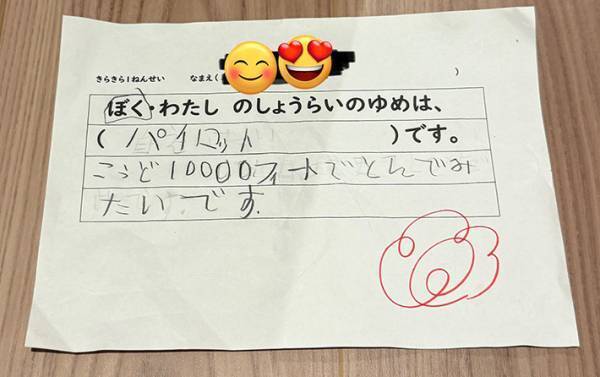 きらきら1ねんせい なまえ( )
ぼく・わたし のしょうらいのゆめは、
(パイロット)です。
こうど10000フィートでとんでみ
たいです。